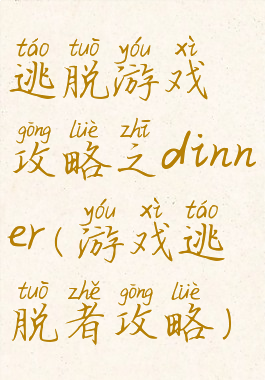 táo tuō yóu xì
逃脱游戏
gōng lüè zhī
攻略之dinn
yóu xì táo
er(游戏逃
tuō zhě gōng lüè
脱者攻略)